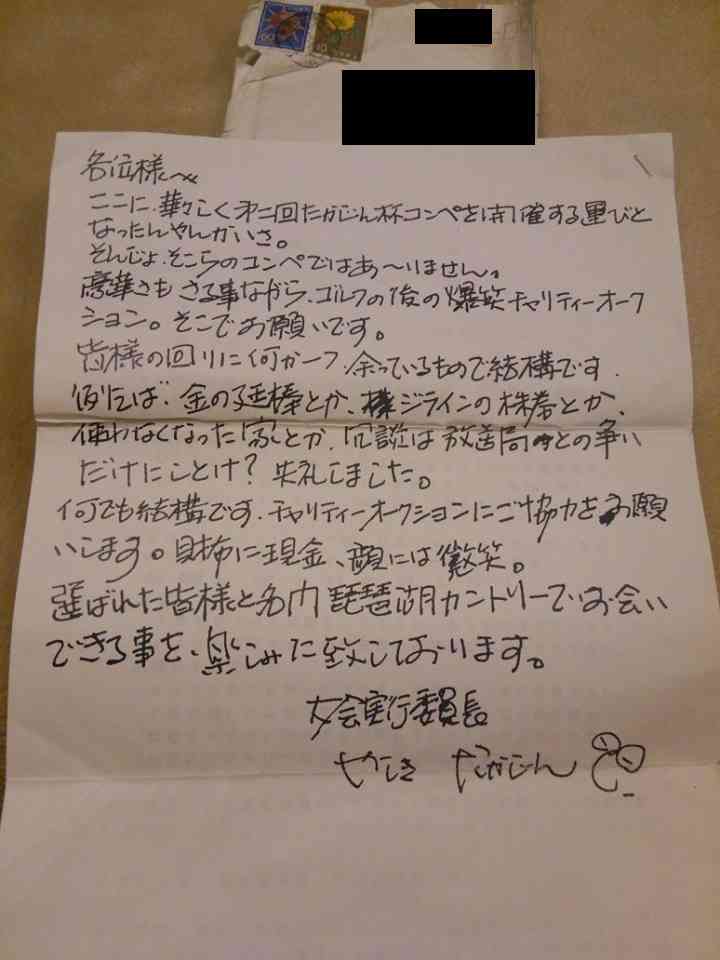 60
10
各位様へ
ここに、華々しく第二回たかじん杯コンペを開催する運びと
なったんやんかいさ。
そんじょそこらのコンペではあ〜りません。
豪華さもさる事ながら、ゴルフの後の爆笑チャリティーオーク
ション。そこでお願いです。
皆様の回りに何か一つ、余っているもので結構です。
例えば、金の延棒とか、ジラインの株券とか、
使わなくなった家とか、冗談は放送局との争い
だけにことけ?失礼しました。
何でも結構です、チャリティーオークションにご協力をお願
いします。財布に現金、顔には微笑。
選ばれた皆様と名門琵琶湖カントリーでお会い
できる事を、楽しみに致しております。
大会実行委員長
やしき たかじん